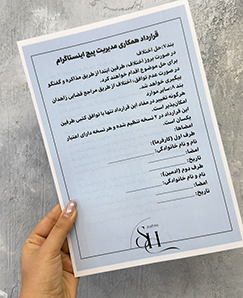 قرارداد همکاری مدیریت پیج اینستاگرام
بند ۷: حل اختلاف
در صورت بروز اختلاف، طرفین ابتدا از طریق مذاکره و گفتگو
برای حل موضوع اقدام خواهند کرد.
در صورت عدم توافق، اختلاف از طریق مراجع قضایی زاهدان
پیگیری خواهد شد.
بند ۸: سایر موارد
هرگونه تغییر در مفاد این قرارداد تنها با توافق کتبی طرفین
امکان‌پذیر است.
این قرارداد در ۲ نسخه تنظیم شده و هر نسخه دارای اعتبار
یکسان است.
امضاها:
طرف اول (کارفرما):
نام و نام خانوادگی:
امضا:
تاریخ:
طرف دوم (ادمین):
نام و نام خانوادگی:
امضا:
تاریخ:
SH